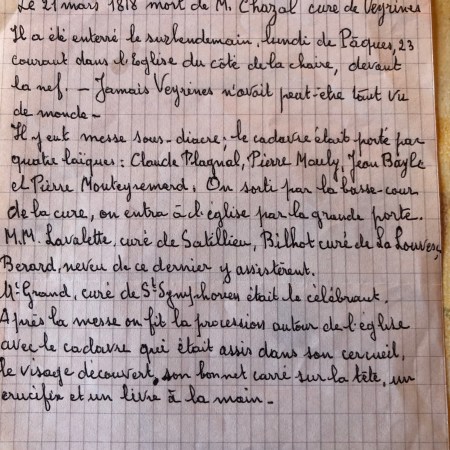 Le 21 mars 1818 mort de M. Chazal curé de Veyrines
Il a été enterré le surlendemain, lundi de Pâques, 23
courant dans l'Eglise du côté de la chaire, devant
la nef. - Jamais Veyrines n'avait peut-être tout vu
de monde -
Il y eut messe sous-diacre; le cadavre était porté par
quatre laïques : Claude Plagnal, Pierre Mauly, Jean Bayle
et Pierre Monteyremard. On sorti par la basse-cour
de la cure, on entra à l'église par la grande porte.
M.M. Lavalette, curé de Satillieu, Bilhot curé de La Louvesc,
Berard, neveu de ce dernier y assistèrent.
Mr Grand, curé de St Symphorien était le célébrant.
Après la messe on fit la procession autour de l'église
avec le cadavre qui était assis dans son cercueil,
le visage découvert, son bonnet carré sur la tête, un
crucifix et un livre à la main -